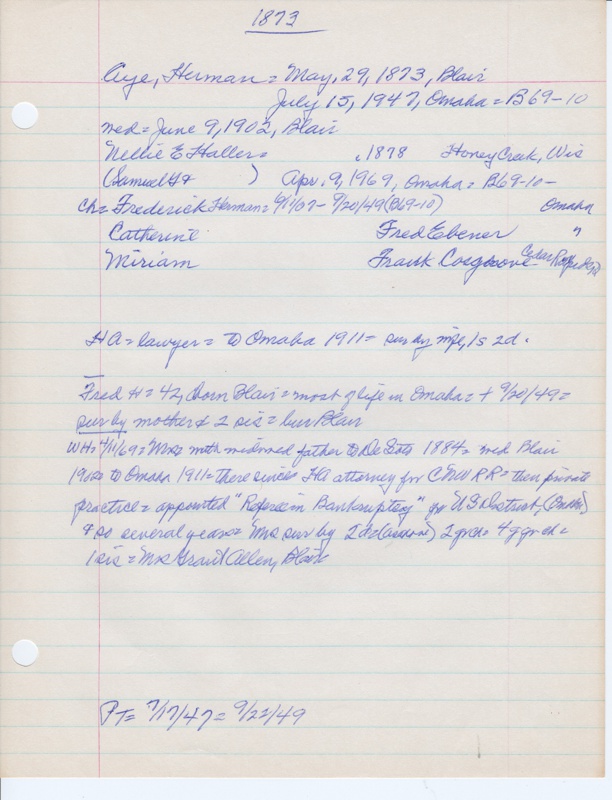 1873
Aye, Herman = May, 29, 1873, Blair
July 15, 1947, Omaha = B69-10
med = June 9, 1902, Blair
Nellie E Haller = , 1878 Honey Creek, Wis
(Samuel H & ) Apr. 9, 1969, Omaha = B69-10-
ch = Frederick Herman = 9/20/49 (B69-10) Omaha
Catherine Fred Ebener "
Miriam Frank Cosgrove Cedar Rapids
HA = lawyer = to Omaha 1911 = sur by wife, 1s 2d.
Fred H = 42, born Blair = most of life in Omaha = + 9/20/49 =
sur by mother & 2 sis = bur Blair
WH = 4/11/69 = Mrs with widowed father to De Soto 1884 = med Blair
to Omaha 1911 = there since = HA attorney for RR = then private
practice = appointed "Referee in Bankruptcy" for US District,
& so several years = Mrs sur by 2 d 2 grch = 4 ggrch =
1 sis = Mrs Grant Allen, Blair
PT = 7/17/47 = 9/22/49